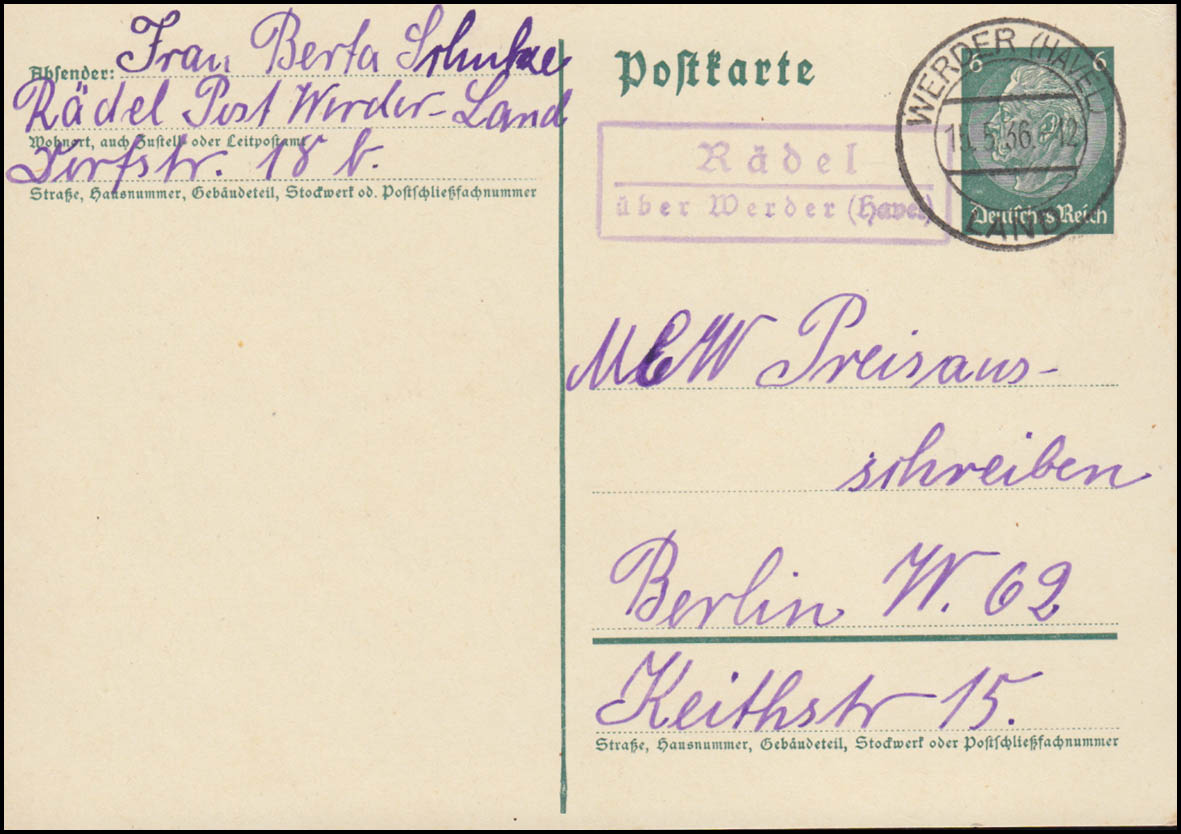 Absender: Frau Berta Schulze
Rädel Post Werder-Land
Wohnort, auch Zustell- oder Leitpostamt
Dorfstr. 18 b.
Straße, Hausnummer, Gebäudeteil, Stockwerk od. Postschließfachnummer
Postkarte
Rädel
über Werder (Havel)
WERDER (HAVEL)
5.36. 12
LAND
6 6
Deutsches Reich
MEW Preisaus-
schreiben
Berlin W. 62
Keithstr 15.
Straße, Hausnummer, Gebäudeteil, Stockwerk oder Postschließfachnummer